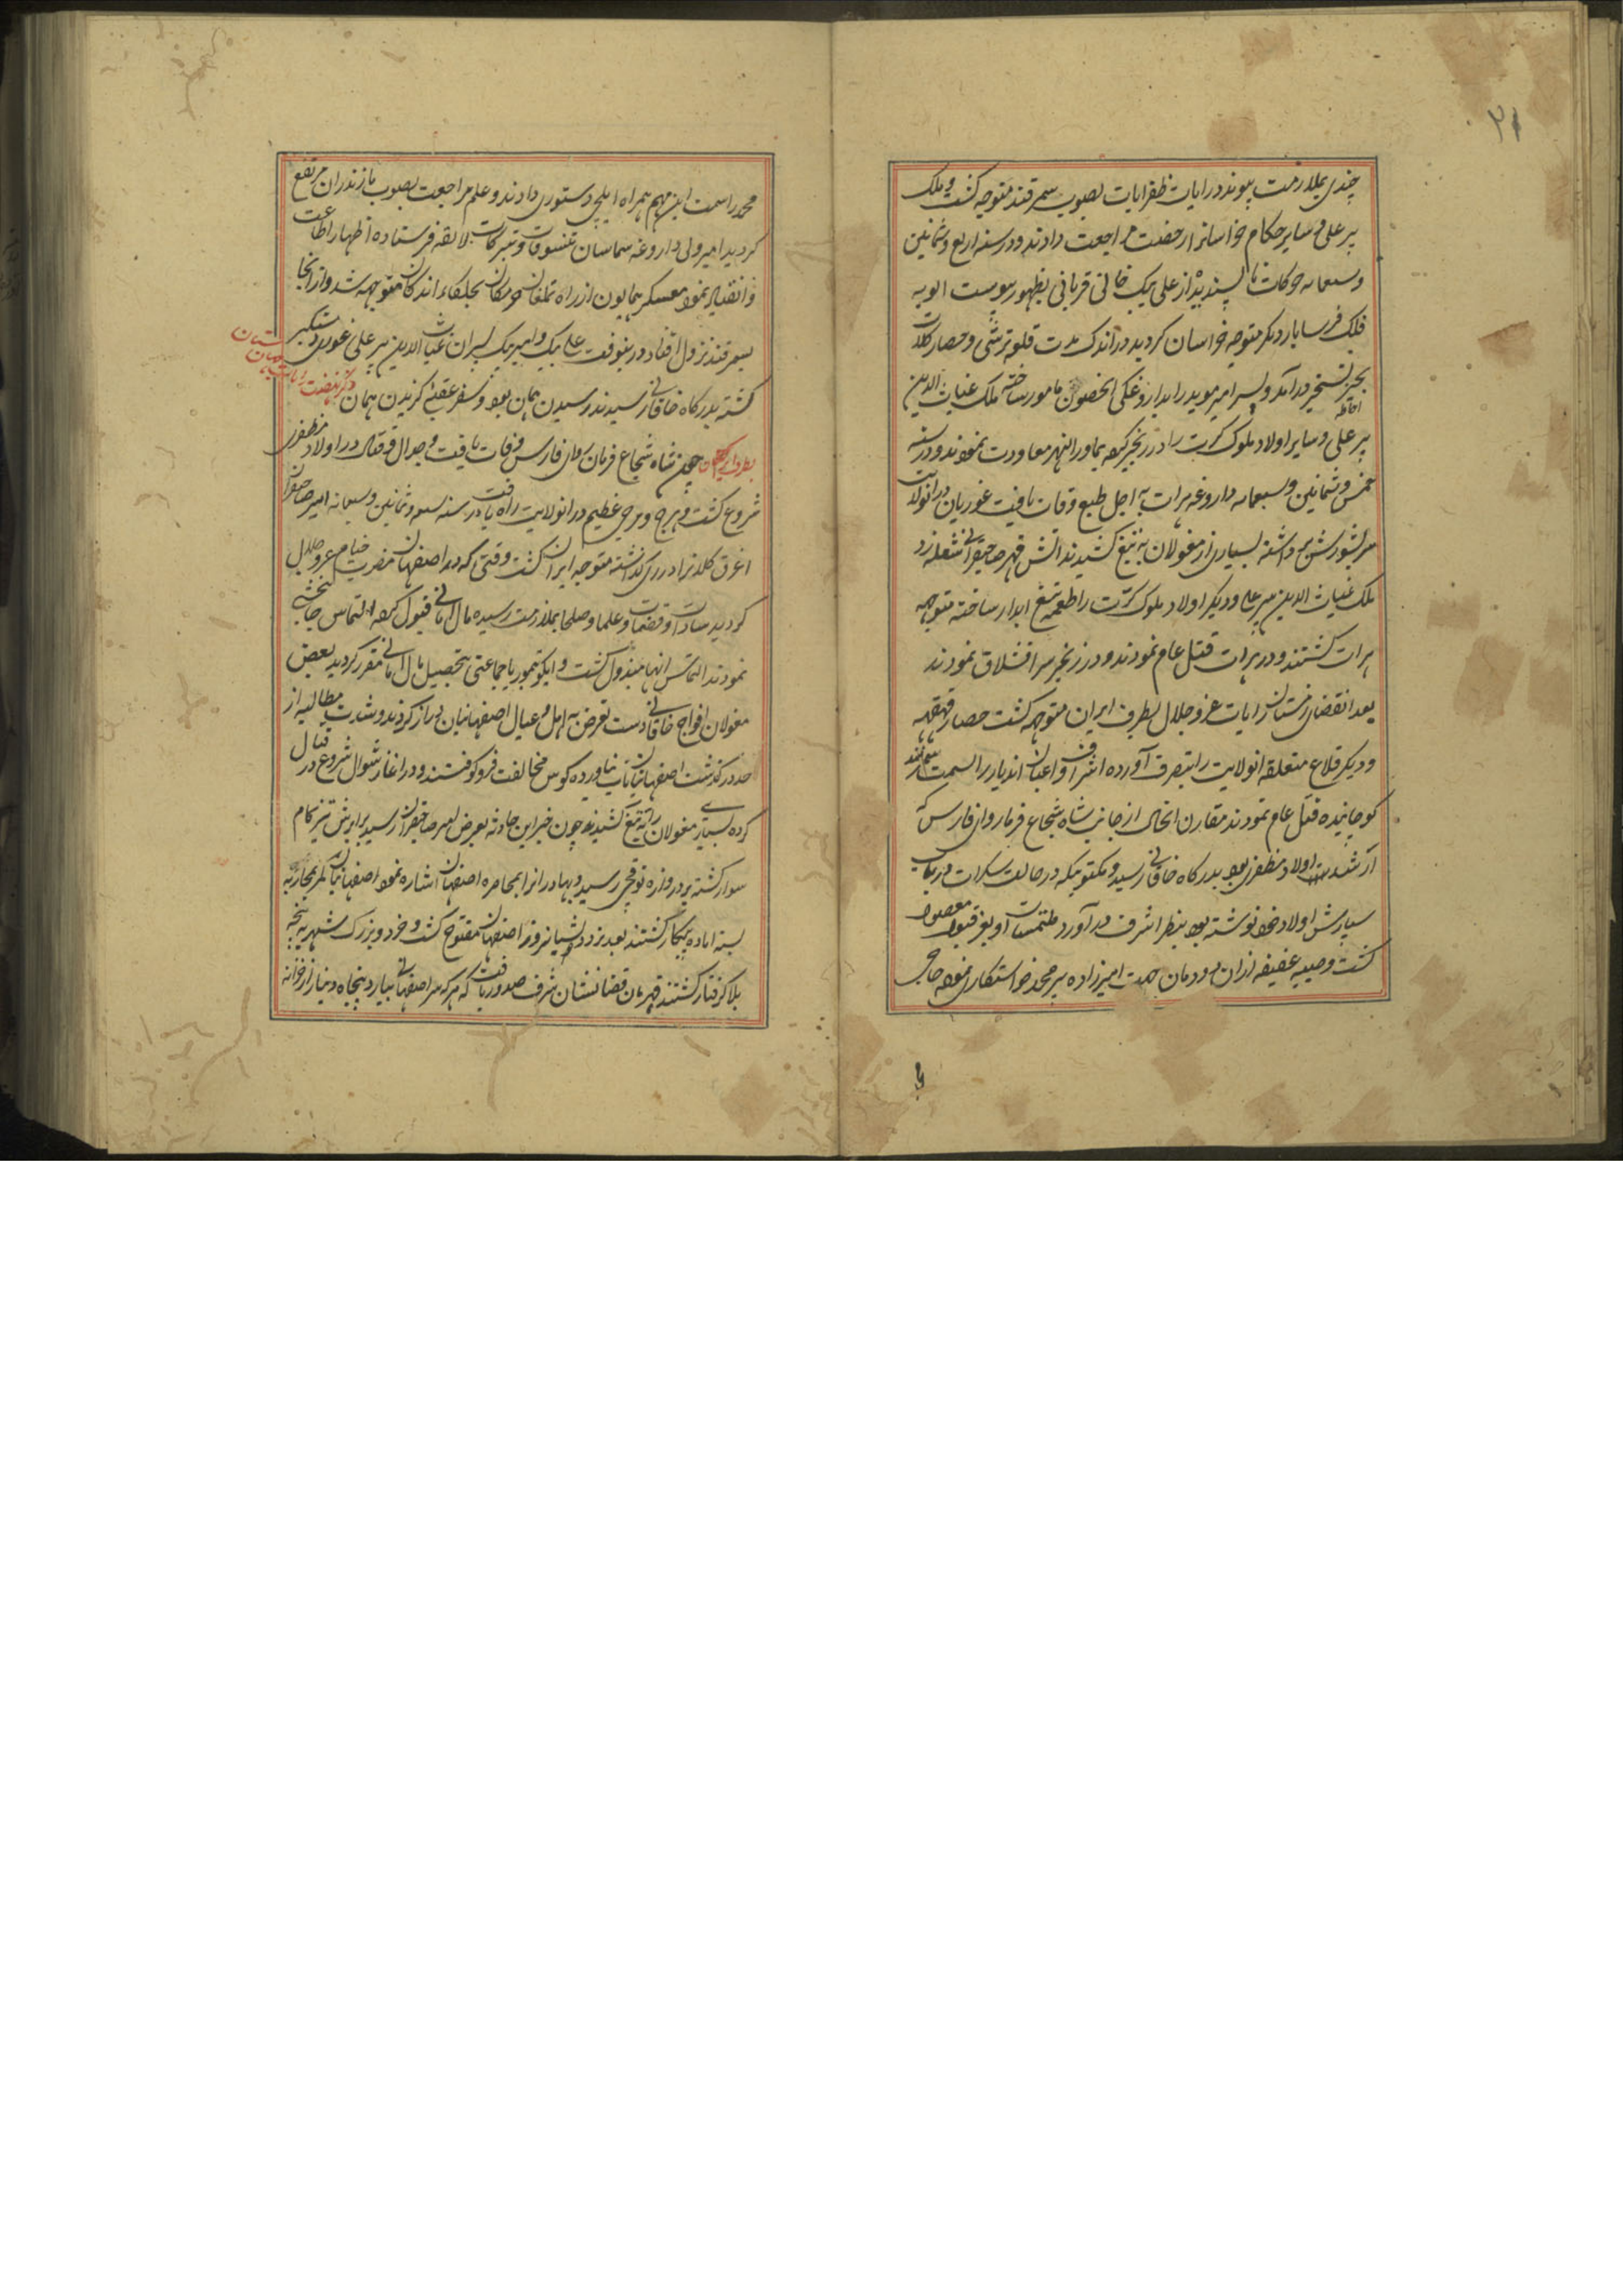 ۲۱
چندی بملازمت پیوندد رایات ظفر ایات بصوب سمرقند متوجه کشت و ملک
پیر علی و سایر حکام خراسانرا رخصت مراجعت دادند و در سنه اربع و ثمانین
و سبعمایه حرکات ناپسندیده از علی بیک جانی قربانی بظهور پیوست الویه
فلک فرسا بار دیکر متوجه خراسان کردید در اندک مدت قلعه ترشی و حصار کلات
بحیز تسخیر درآمد و پسر امیر موید را بداروغکی انحصون مامور ساخته ملک غیاث الدین
پیر علی و سایر اولاد ملوک کرت را در زنجیر کرده بماورالنهر معاودت نمودند و در سنه
خمس و ثمانین و سبعمایه داروغه هرات به اجل طبع وفات یافت غوریان در انولایت
سر بشورش برداشته بسیاری از مغولان به تیغ کشیدند اتش قهر صاحبقرانی شعله زد
ملک غیاث الدین پیر علی و دیکر اولاد ملوک کرت را طعمه تیغ ابدار ساخته متوجه
هرات کشتند و در هرات قتل عام نمودند و در زنجیر سرا قشلاق نمودند
بعد انقضای زمستان رایات عز و جلال بطرف ایران متوجه کشت حصار قهقهه
و دیکر قلاع متعلقه انولایت را بتصرف آورده اشراف و اعیان اندیار را بسمت سمرقند
کوچانیده قتل عام نمودند مقارن انحال از جانب شاه شجاع فرمان روای فارس که
ارشد اولاد مظفری بود بدرکاه خاقانی رسید و مکتوبیکه در حالت سکرات در باب
سپارش اولاد خود نوشته بود بنظر اشرف درآورد ملتمسات او بعز قبول موصول
کشت و صبیه عفیفه ازان دودمان جهت امیرزاده پیر محمد خواستکاری نموده حاجی
محمد را بسمت این مهم همراه ایلچی دستوری دادند و علم مراجعت بصوب مازندران مرتفع
کردید امیر ولی داروغه سماسان تنسوقات و تبرکات لایقه فرستاده اظهار اطاعت
و انقیاد نمود معسکر همایون از راه بجلکاء اندکان متوجه شد و از انجا
بسمرقند نزول افتاد در ینوقت علی بیک و امیر بیک پسران غیاث الدین پیر علی غوری دستکیر
کشته بدرکاه خاقانی رسیدند رسیدن همان بود و سفر عقبی کزیدن همان
چون شاه شجاع فرمان روای فارس وفات یافت و جدال و قتال در اولاد مظفری
شروع کشت و هرج و مرج عظیم در انولایت راه یافت در سنه سبع و ثمانین و سبعمایه امیر صاحبقران
اغرق کلانرا در ری کذاشته متوجه ایران کشت وقتی که در اصفهان مضرب خیام عز و جلال
کردید سادات و قضات و علما و صلحا بملازمت رسیده مال امانی قبول کرده التماس جان بخشی
نمودند التماس انها مبذول کشت و ایکو تیمور با جماعتی بتحصیل مال امانی مقرر کردید بعض
مغولان افواج خاقانی دست تعرض به اهل و عیال اصفهانیان دراز کردند و شدت مطالبه از
حد در کذشت اصفهانیان تاب نیاورده کوس مخالفت فرو کوفتند و در اغاز شوال شروع در قتال
کرده بسیاری مغولان را به تیغ کشیدند چون خبر این حادثه بعرض امیر صاحبقران رسید برابرش تیز کام
سوار کشته بر دروازه توقچی رسید و بهادرانرا بمحاصره اصفهان اشاره نمود اصفهانیان کمر بمحاربه
بسته اماده پیکار کشتند بعد یزد دو شبانروز اصفهان مفتوح کشت و خرد و بزرک شهر به پنجه
بلا کرفتار کشتند قهرمان قضا نشان شرف صدور یافت که هر که سر اصفهانی بیارد پنجاه دینار از خزانه